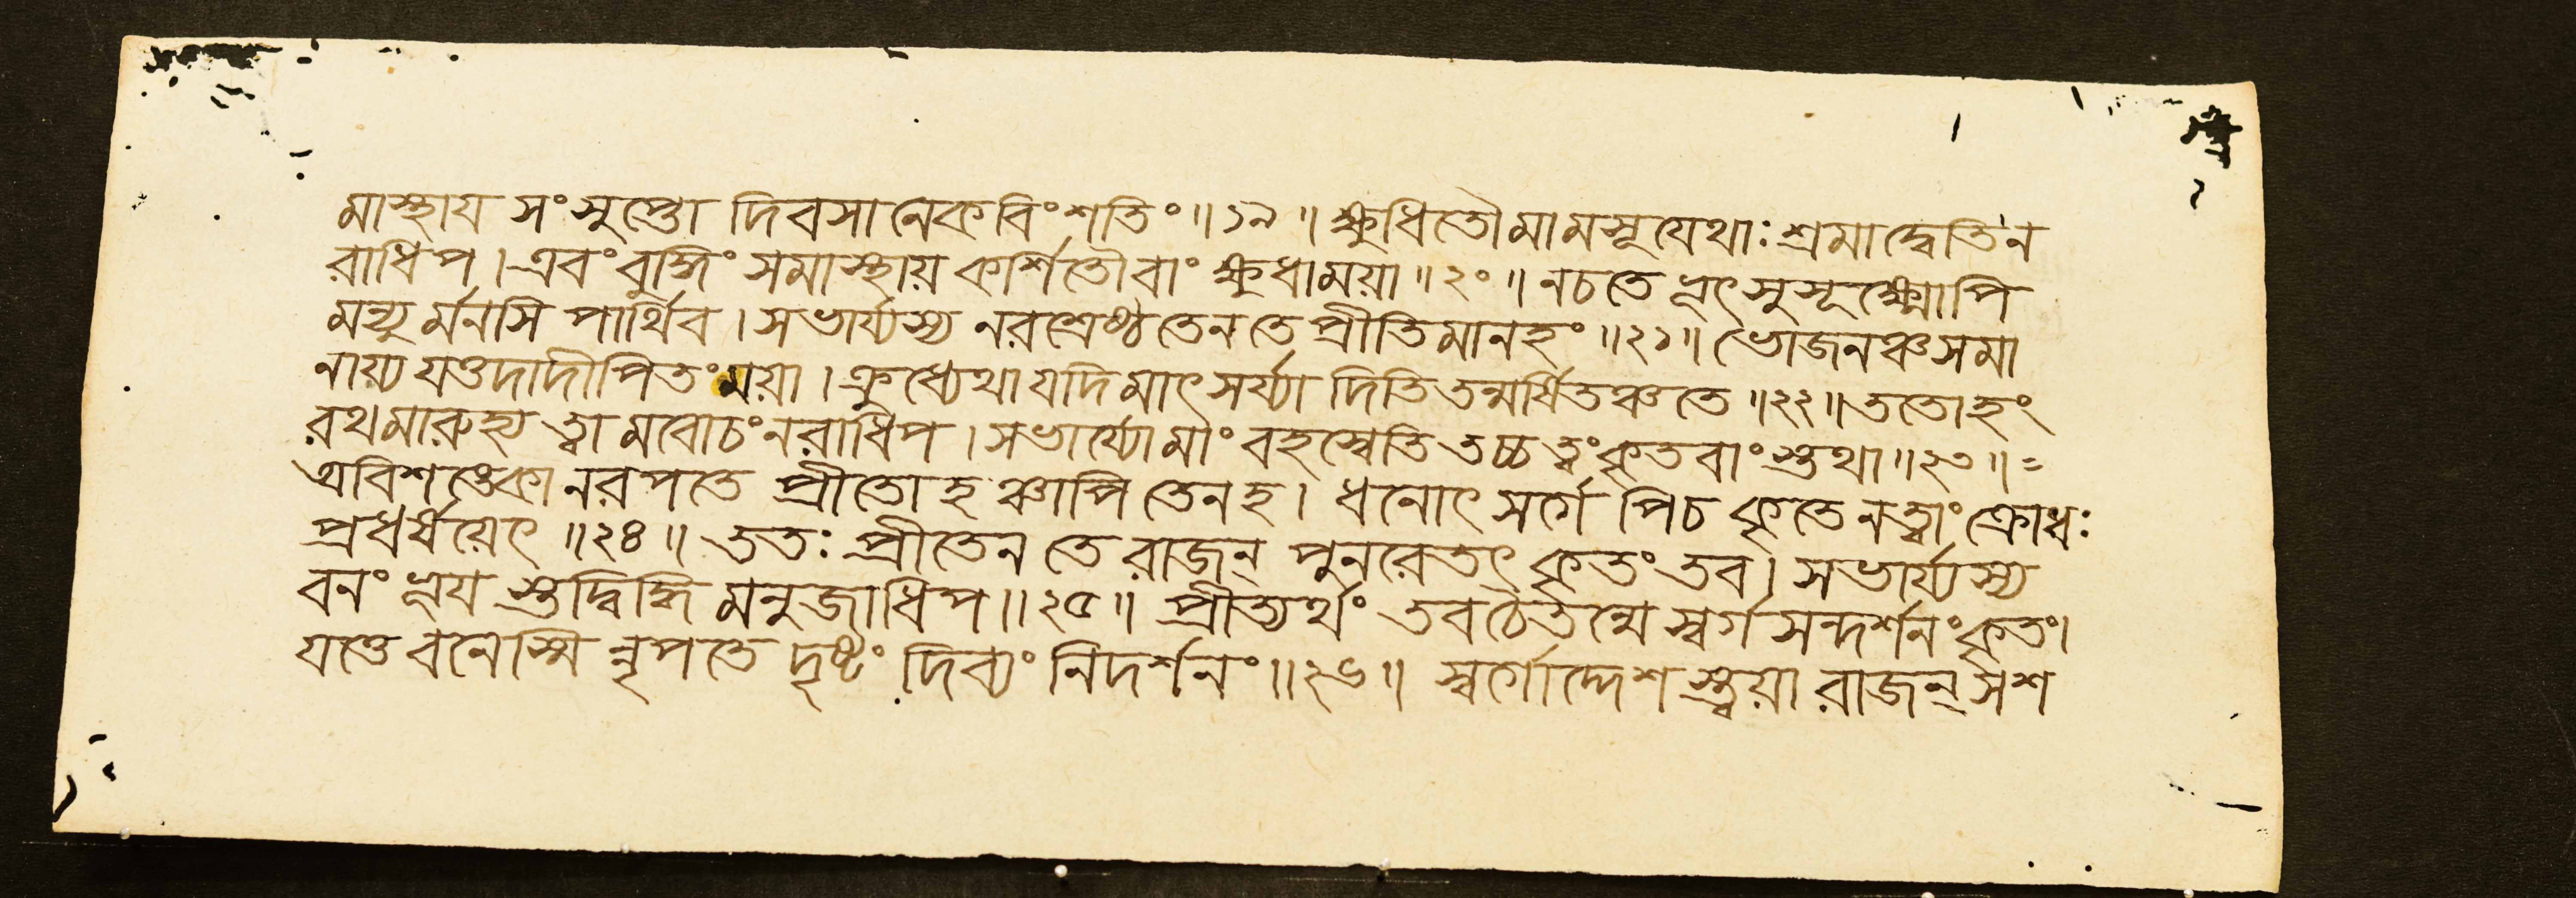 মাস্থায সংসুপ্তো দিবসানেকবিংশতিং॥১৯॥ক্ষুধিতৌমামসূযেথাঃশ্রমাদ্বেতিন
রাধিপ।এবংবুদ্ধিংসমাস্থায়কর্শিতৌবাংক্ষুধাময়া॥২০॥নচতেভূৎসুসূক্ষ্মোপি
মন্যুর্মনসিপার্থিব।সভার্য্যস্যনরশ্রেষ্ঠতেনতেপ্রীতিমানহং॥২১॥ভোজনঞ্চসমা
নায়্যযত্তদাদীপিতংময়া।ক্রুধ্যেথাযদিমাৎসর্য্যাদিতিতন্মর্ষিতঞ্চতে॥২২॥ততোহং
রথমারুহ্যত্বামবোচংনরাধিপ।সভার্য্যোমাংবহস্বেতিতচ্চত্বংকৃতবাংস্তথা॥২৩॥=
অবিশঙ্কোনরপতে প্রীতোহঞ্চাপিতেনহ। ধনোৎসর্গেপিচকৃতেনত্বাংক্রোধঃ
প্রধর্ষয়েৎ॥২৪॥ ততঃপ্রীতেনতেরাজন্ পুনরেতৎকৃতংতব। সভার্য্যস্য
বনংভূযস্তদ্বিদ্ধিমনুজাধিপ॥২৫॥ প্রীত্যর্থং তবচৈতন্মেস্বর্গসন্দর্শনংকৃতং।
যত্তেবনেস্মিন্নৃপতেদৃষ্টংদিব্যংনিদর্শনং॥২৬॥ স্বর্গোদ্দেশস্ত্বয়ারাজন্সশ